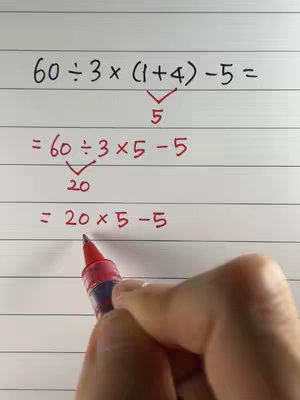 60 ÷ 3 × (1+4) - 5 =
5
= 60 ÷ 3 × 5 - 5
20
= 20 × 5 - 5